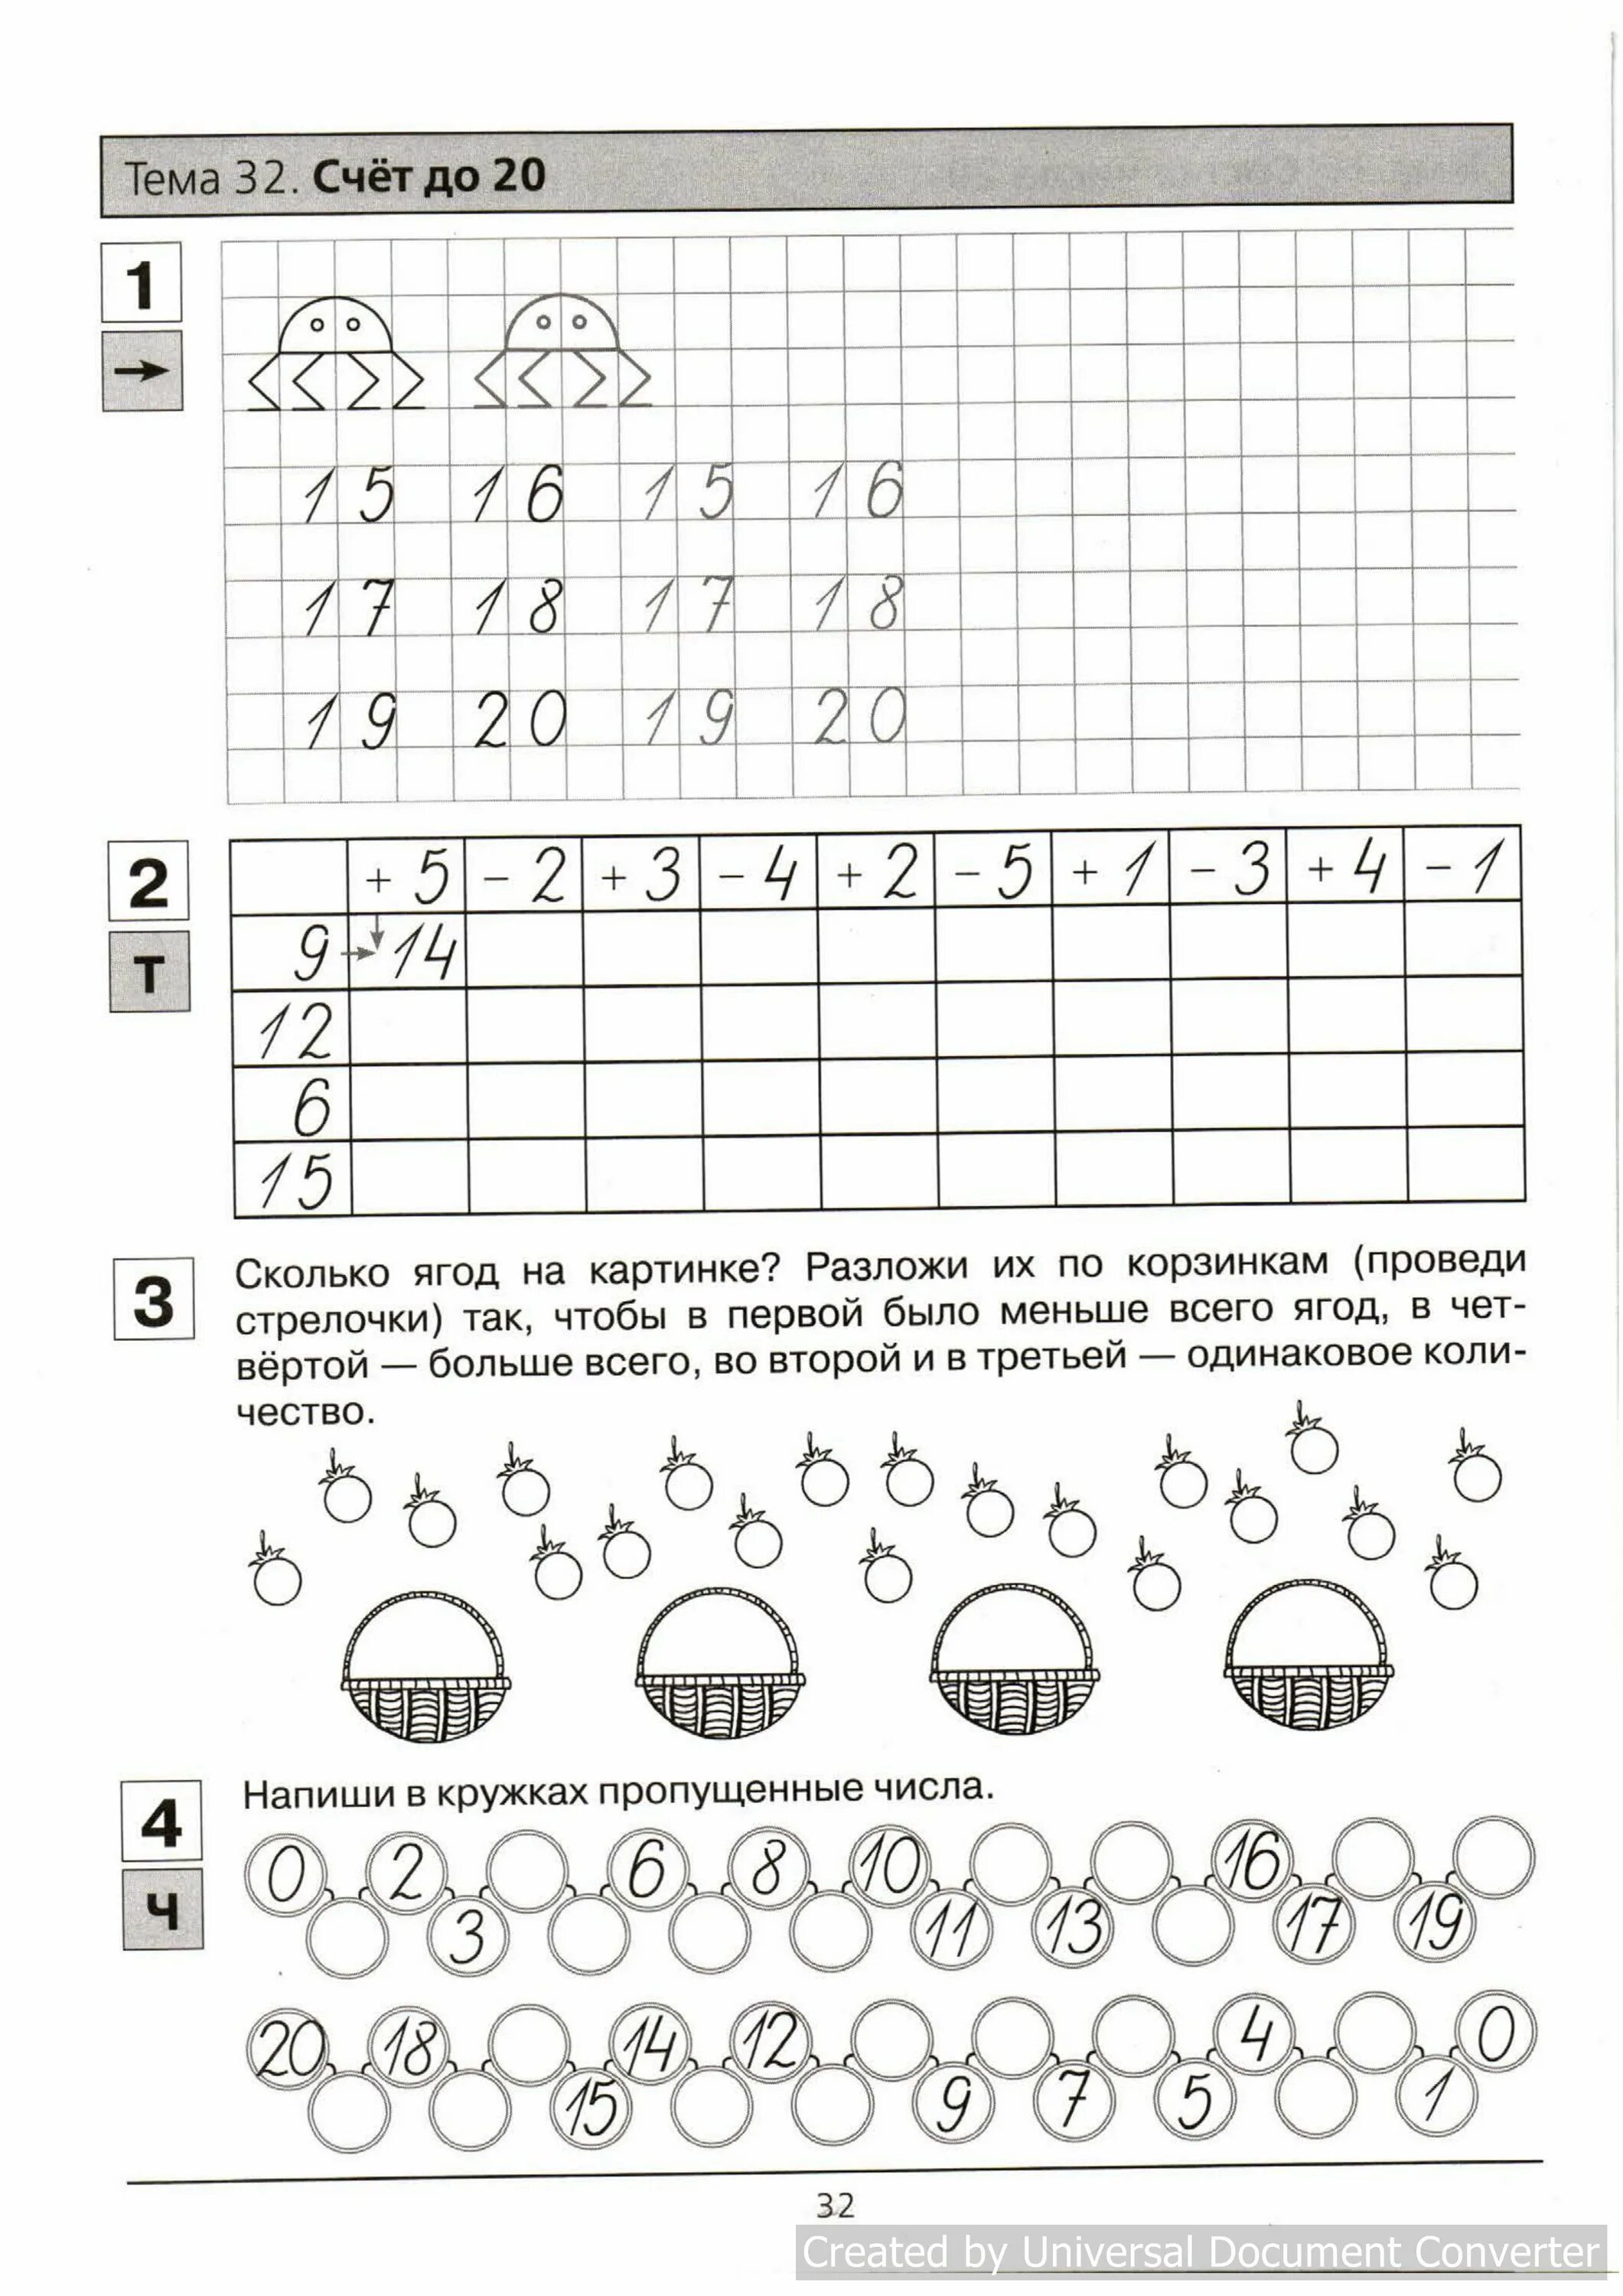 Тема 32. Счёт до 20
1
→
15 16 15 16
17 18 17 18
19 20 19 20
2
Т
+ 5 - 2 + 3 - 4 + 2 - 5 + 1 - 3 + 4 - 1
9 14
12
6
15
3
Сколько ягод на картинке? Разложи их по корзинкам (проведи
стрелочки) так, чтобы в первой было меньше всего ягод, в чет-
вёртой — больше всего, во второй и в третьей — одинаковое коли-
чество.
4
Ч
Напиши в кружках пропущенные числа.
0 2 6 8 10 16
3 11 13 17 19
20 18 14 12 4 0
15 9 7 5 1
32
Created by Universal Document Converter